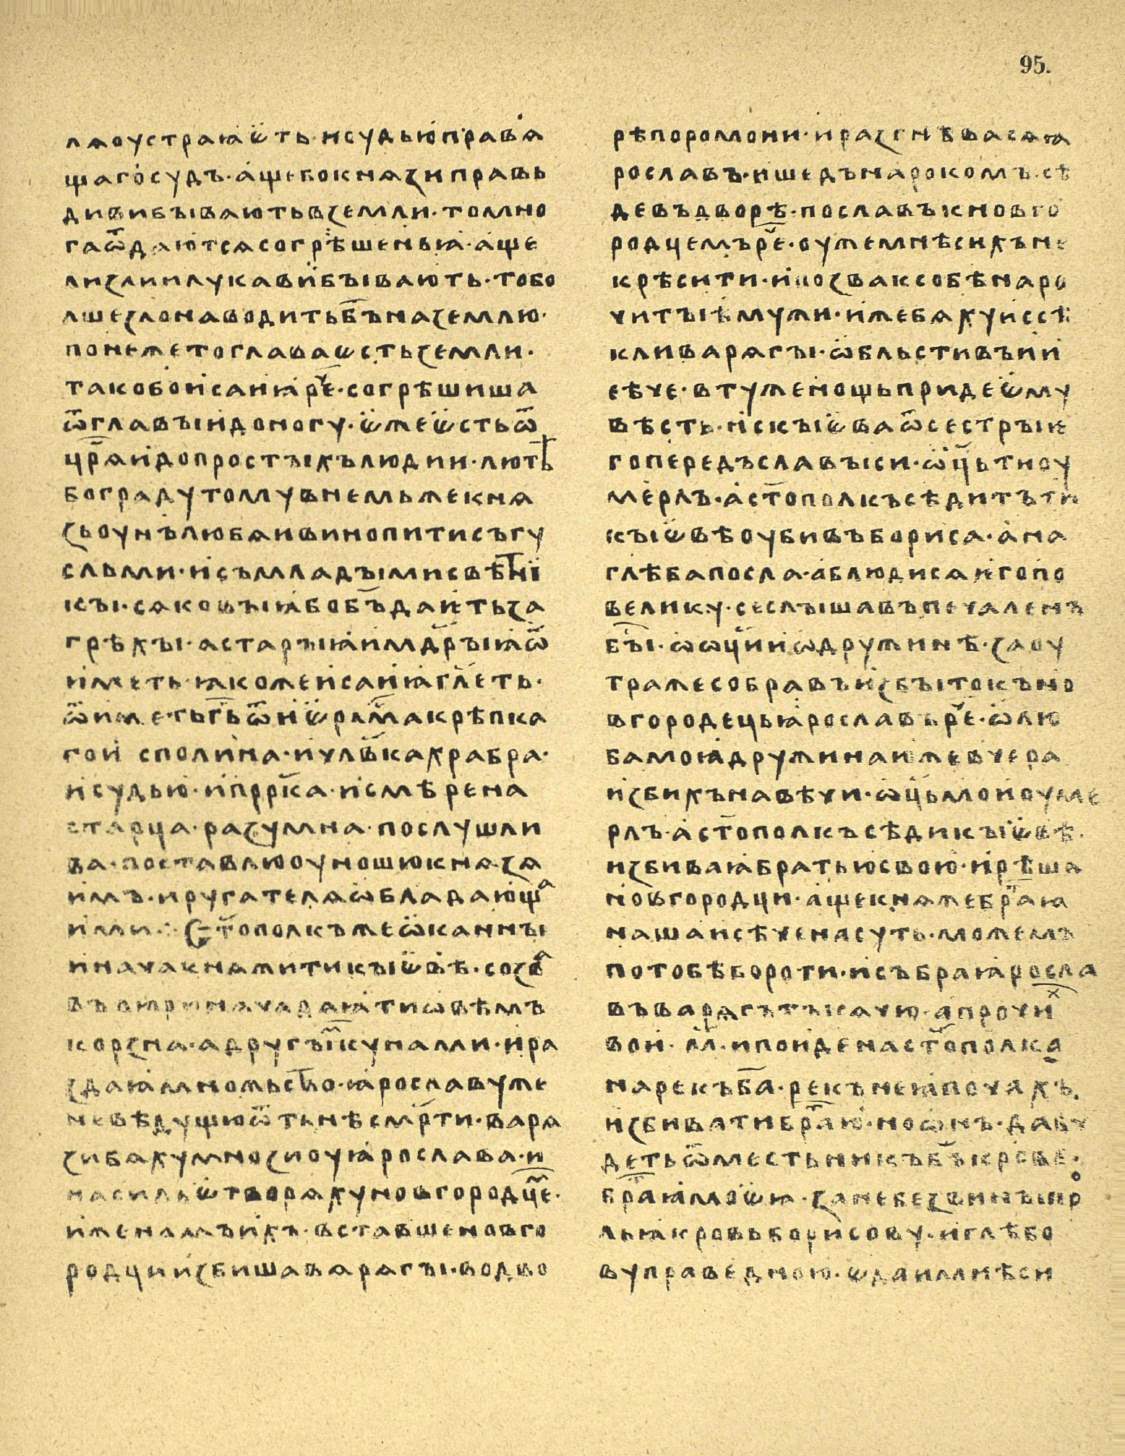 95.
ляоустраꙗѥть·исудьюправѧ
щагосудъ·ащебокнѧзиправь
дивибывaютьвземли·томно
гаѿдаютсѧсогрѣшеньꙗ·аще
лизлиилукавибываютъ·тобо
лшезлонаводитьб҃ъназемлю·
понежетоглаваѥстьземли·
такобоисаꙗре҇·согрѣшиша
ѿглавыидоногу·ѥжеѥстьѿ
цр҃ѧидопростыхълюдии·лютѣ
боградутомувнемьжекнѧ
зьоунълюбѧивинопитисъгу
сльми·исъмладымисвѣтни
кы·сѧковыꙗбоб҃ъдаеть за
грѣхы·астарыꙗимдр҃ыꙗѿ
иметь·ꙗкожеисаꙗгл҃еть·
ѿиметьг҃ьѿиѥрл҃макрѣпка
гои сполина·ичл҃вкахрабра·
исудью·ипрр҃ка·исмѣрена
старца·разумна·послушли
ва·поставлюоуношюкнѧзѧ
имъ·иругателѧѡбладающа
ими·Ст҃ополкъжеѡканныи
иначакнѧжитикыѥвѣ·созва
въ
корзна·адругыⷨкунами·ира
здаꙗмножьство·ꙗрославуже
невѣдущюѿтьнѣсмр҃ти·варѧ
зибѧхумнозиоуꙗрослава·и
насильѥтворѧхуновгородцеⷨ·
иженамъихъ·вставшеновго
родциизбишаварѧгы·водво
рѣпоромони·иразгнѣвасѧꙗ
рославъ·ишедънарокомъ·сѣ
девъдворѣ·пославъкновго
родцемъре҇·оужемнѣсихъне
крѣсити·ипозваксобѣнаро
читыѣмужи·ижебѧхуиссѣ
кливарѧгы·ѡбльстивъиⷯи
сѣче·втуженощьпридеѥму
вѣсть·искыѥваѿсестрыѥ
гопередъславыси·ѡц҃ьтиоу
мерлъ·аст҃ополкъсѣдитъти
кыѥвѣоубивъбориса·ана
глѣбапосла·аблюдисѧѥгопо
велику·сеслышавъпечаленъ
бы҇·ѡѡц҃ииѡдружинѣ·заоу
тражесобравъизбытокъно
вгородецьꙗрославъре҇·ѡлю
бамоꙗдружинаижевчера
избихънавѣчи·ѡц҃ьмоиоуме
рлъ·аст҃ополкъсѣдикыѥвѣ·
избиваꙗбратьюсвою·ирѣша
новгородци·ащекнѧжебр҃аꙗ
нашаисѣченасуть·можемъ
потобѣбороти·исъбраꙗросла
въварѧгътысѧчю·апрочиⷯ
вои·м҃·ипоиденаст҃ополка
нарекъб҃а·рекънеꙗпочахъ
избиватибр҃аю·нооⷩъ·дабу
детьѿместьникъб҃ъкрове·
бр҃аꙗмоѥꙗ·занебезвиныпро
льꙗкровьборисову·иглѣбо
вуправедною·ѥдаимнѣси